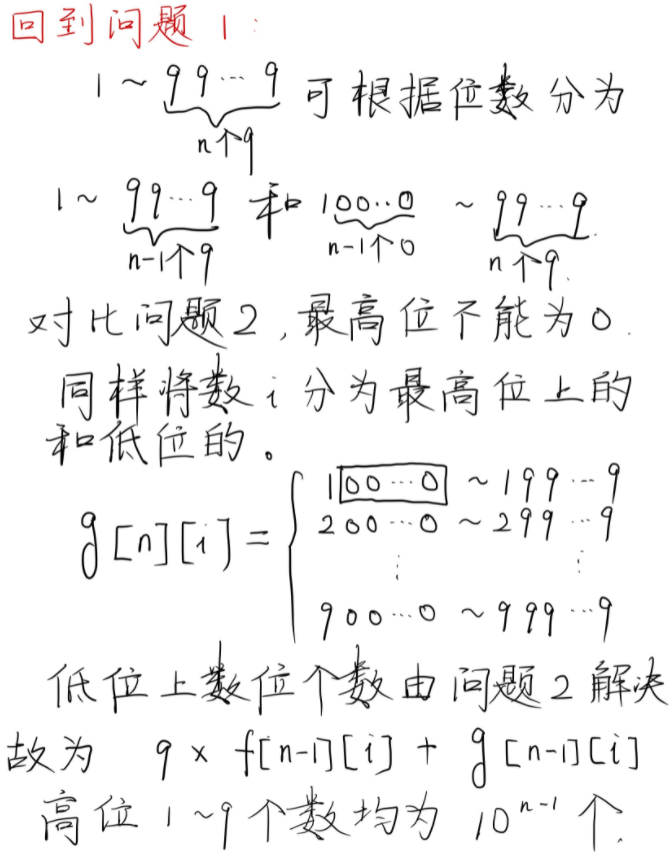 回到问题1:
1 ~ 99…9 可根据位数分为
n个9
1 ~ 99…9 和 100..0 ~ 99…9.
n-1个9 n-1个0 n个9.
对比问题2,最高位不能为0.
同样将数i分为最高位上的
和低位的。
100…0 ~ 199…9
g[n][i] = 200…0 ~ 299…9
⋮ ⋮
900…0 ~ 999…9
低位上数位个数由问题2解决
故为 9 × f[n-1][i] + g[n-1][i]
高位1~9个数均为 10^{n-1} 个.